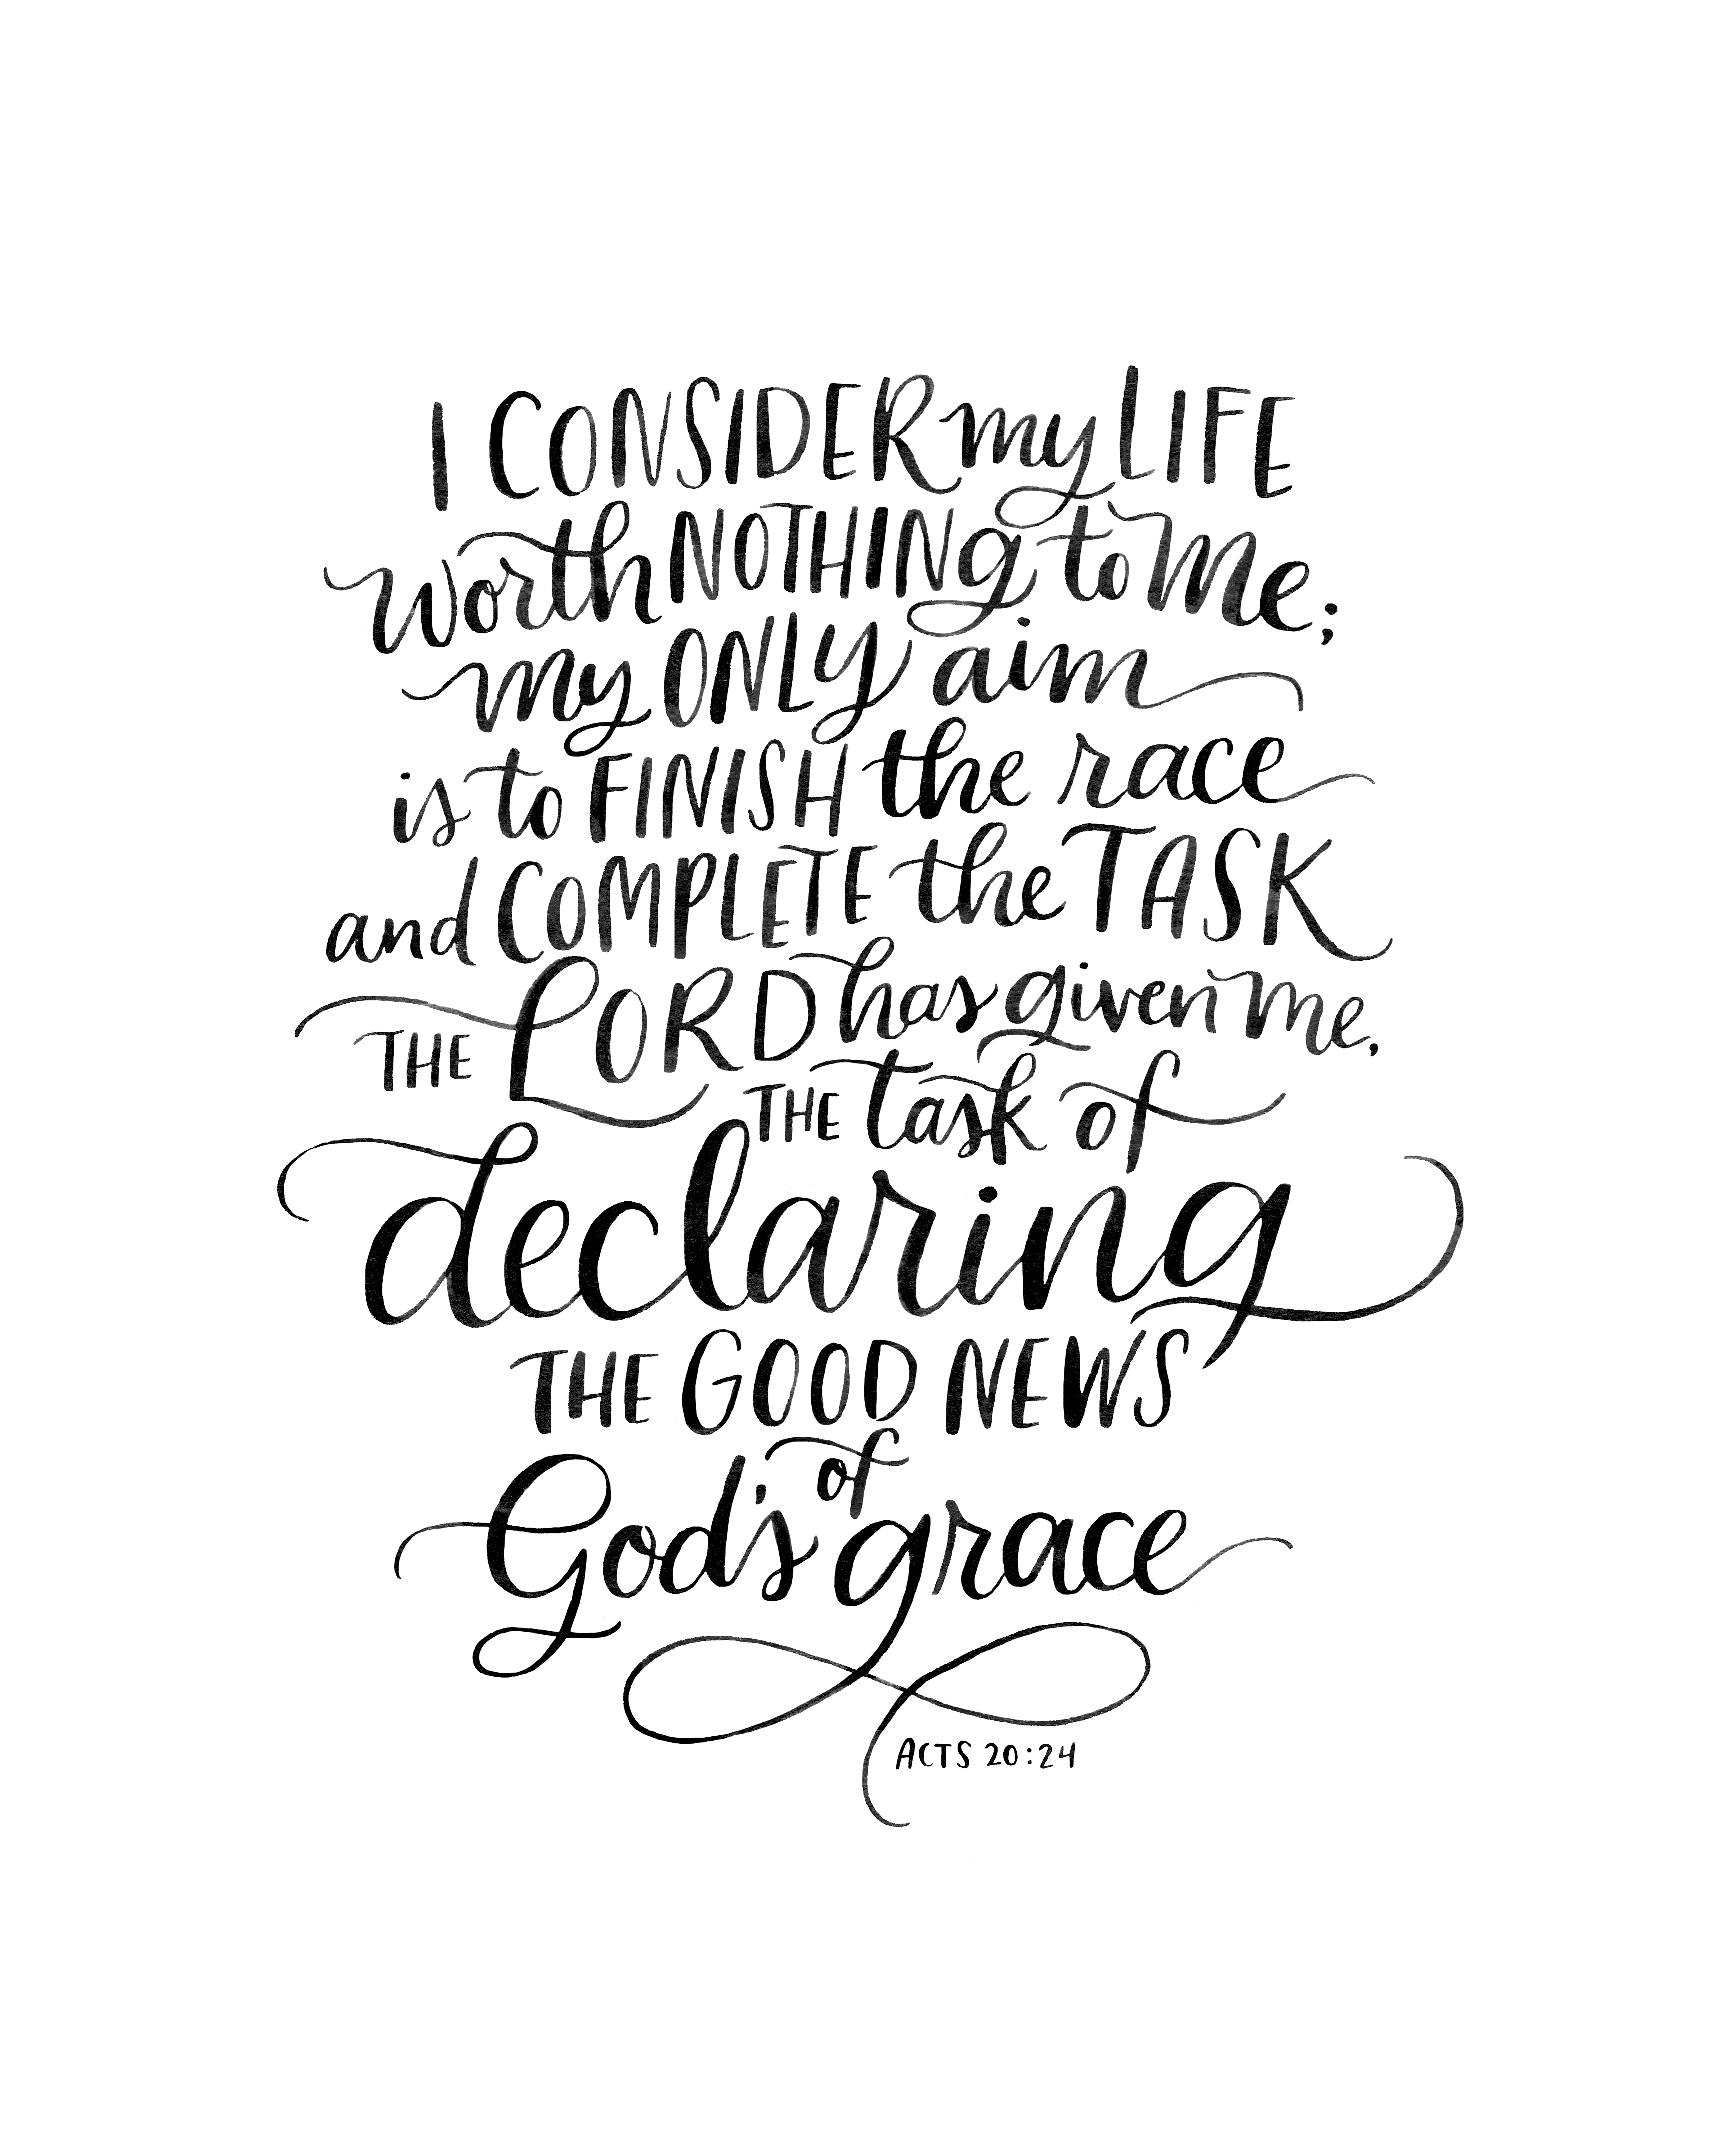 I CONSIDER my LIFE
worth NOTHING to me;
my ONLY aim
is to FINISH the race
and COMPLETE the TASK
THE LORD has given me,
THE task of
declaring
THE GOOD NEWS
of
God's grace
ACTS 20:24